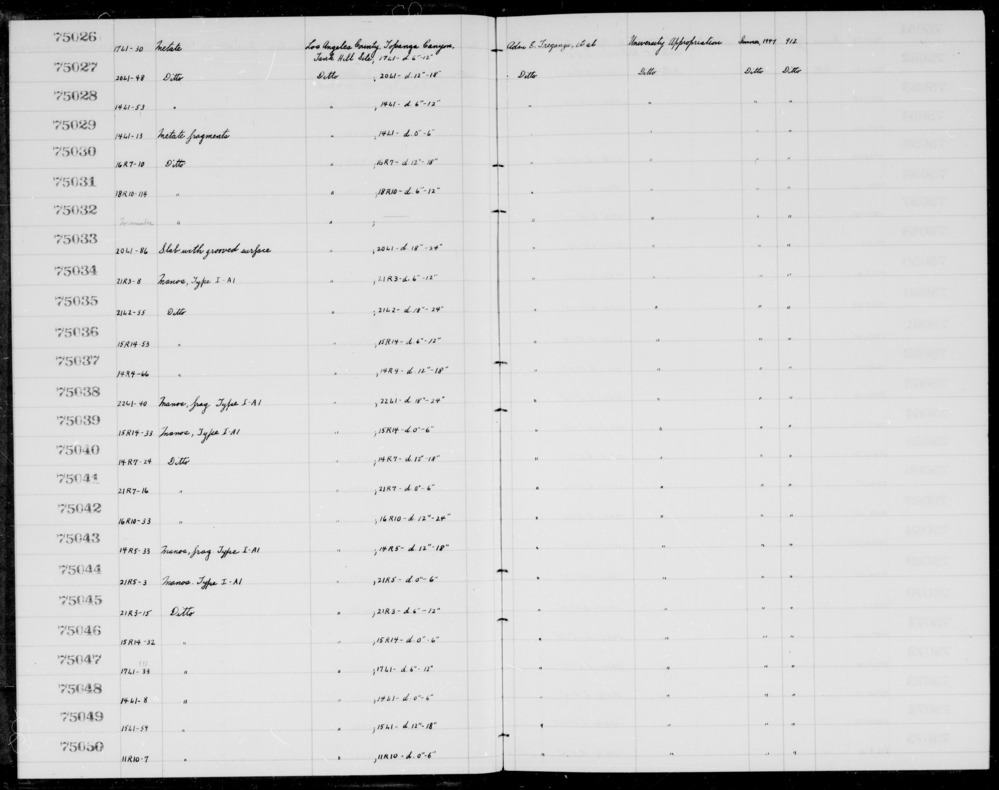 75026 1761-30 Metate Los Angeles County, Topanga Canyon, Adan E. Treganza, et al University Appropriation Summer, 1947 912
Tank Hill Site, 17L1- d. 6"-12"
75027 20L1-48 Ditto Ditto , 20L1- d. 12"-18" Ditto Ditto Ditto Ditto
75028 14L1-53 " " , 14L1- d. 6"-12" " " " "
75029 14L1-13 Metate fragments " , 14L1- d. 0"-6" " " " "
75030 16R7-10 Ditto " , 16R7- d. 12"-18" " " " "
75031 18R10-114 " " , 18R10- d. 6"-12" " " " "
75032 No number " " , — " " " "
75033 20L1-86 Slab with grooved surface " , 20L1- d. 18"-24" " " " "
75034 21R3-8 Manos, Type I-A1 " , 21R3- d. 6"-12" " " " "
75035 21L2-55 Ditto " , 21L2- d. 18"-24" " " " "
75036 15R14-53 " " , 15R14- d. 6"-12" " " " "
75037 14R4-66 " " , 14R4- d. 12"-18" " " " "
75038 22L1-40 Manos, frag Type I-A1 " , 22L1- d. 18"-24" " " " "
75039 15R14-33 Manos, Type I-A1 " , 15R14- d. 0"-6" " " " "
75040 14R7-24 Ditto " , 14R7- d. 12"-18" " " " "
75041 21R7-16 " " , 21R7- d. 0"-6" " " " "
75042 16R10-33 " " , 16R10- d. 12"-24" " " " "
75043 14R5-33 Manos, frag Type I-A1 " , 14R5- d. 12"-18" " " " "
75044 21R5-3 Manos, Type I-A1 " , 21R5- d. 0"-6" " " " "
75045 21R3-15 Ditto " , 21R3- d. 6"-12" " " " "
75046 15R14-32 " " , 15R14- d. 0"-6" " " " "
75047 17L1-33 " " , 17L1- d. 6"-12" " " " "
75048 14L1-8 " " , 14L1- d. 0"-6" " " " "
75049 15L1-59 " " , 15L1- d. 12"-18" " " " "
75050 11R10-7 " " , 11R10- d. 0"-6" " " " "